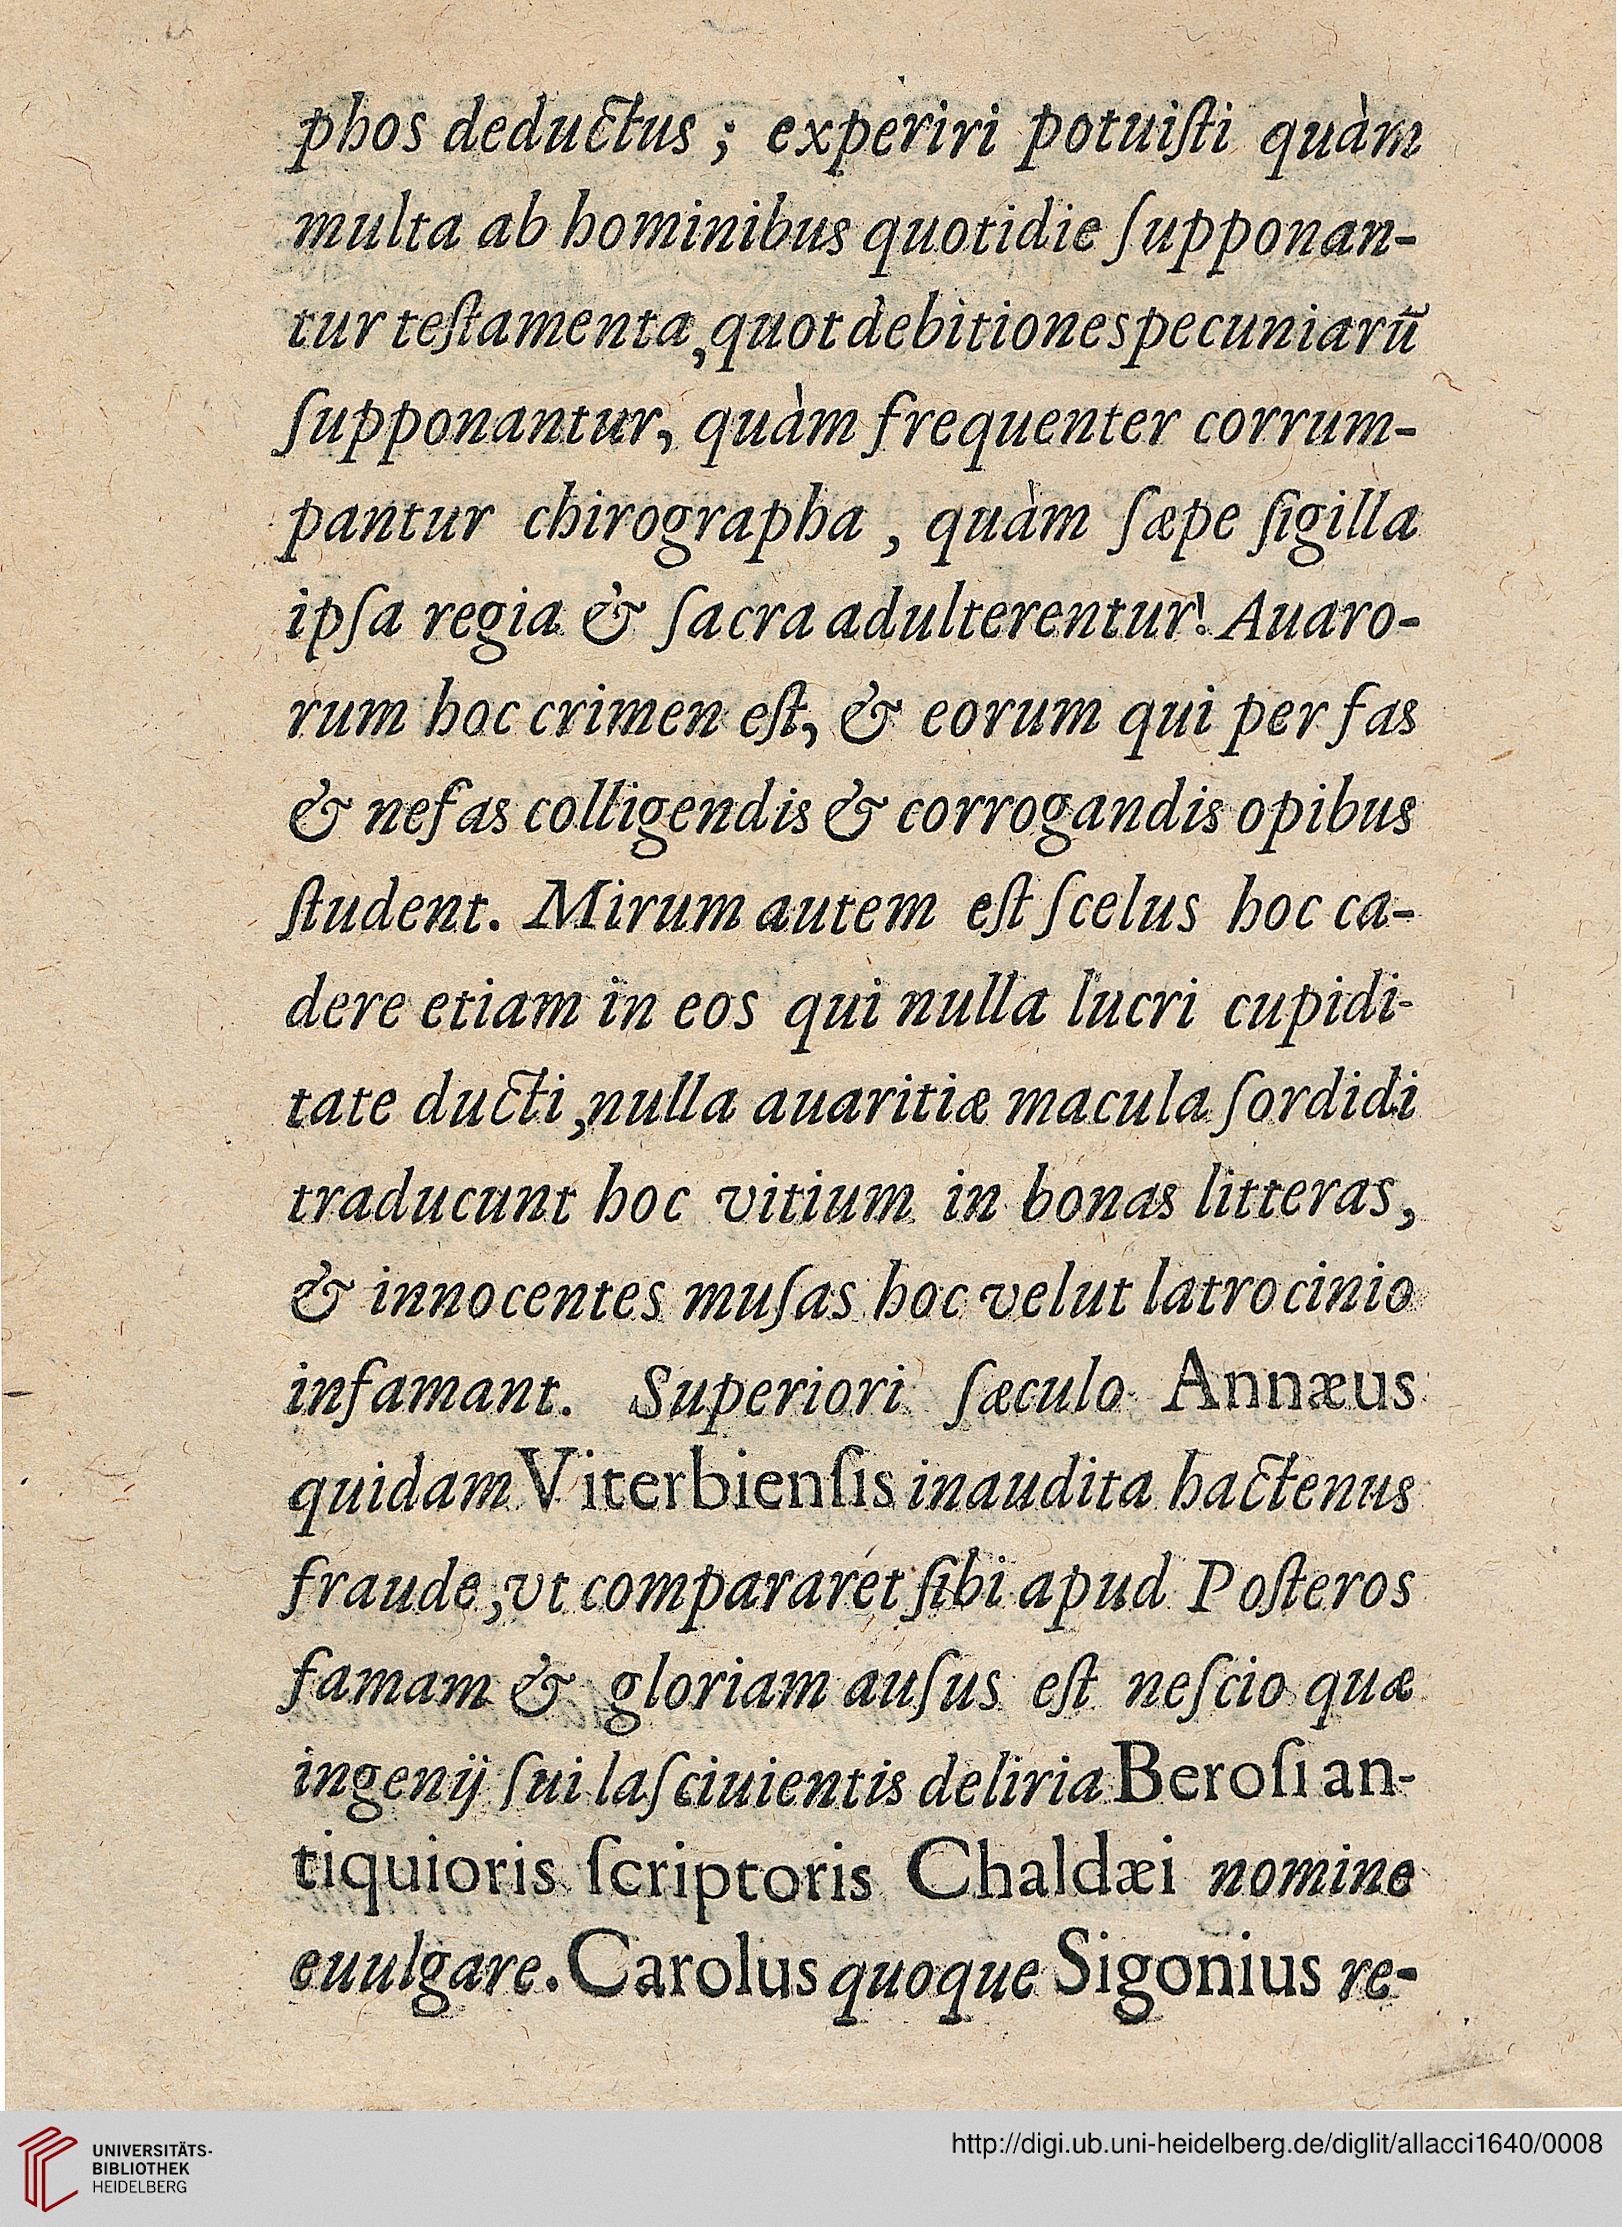 phos deductus; experiri potuiſti quàm
multa ab hominibus quotidie ſupponan-
tur teſtamenta, quot debitiones pecuniarũ
ſupponantur, quàm frequenter corrum-
pantur chirographa, quàm ſæpe ſigilla
ipſa regia & ſacra adulterentur! Auaro-
rum hoc crimen eſt, & eorum qui per fas
& nefas colligendis & corrogandis opibus
ſtudent. Mirum autem eſt ſcelus hoc ca-
dere etiam in eos qui nulla lucri cupidi-
tate ducti, nulla auaritiæ macula ſordidi
traducunt hoc vitium in bonas litteras,
& innocentes muſas hoc velut latrocinio
infamant. Superiori ſæculo Annæus
quidam Viterbienſis inaudita hactenus
fraude, vt compararet ſibi apud Poſteros
famam & gloriam auſus eſt neſcio quæ
ingenij ſui laſciuientis deliria Beroſi an-
tiquioris ſcriptoris Chaldæi nomine
euulgare. Carolus quoque Sigonius re-
UNIVERSITÄTS-
BIBLIOTHEK
HEIDELBERG
http://digi.ub.uni-heidelberg.de/diglit/allacci1640/0008